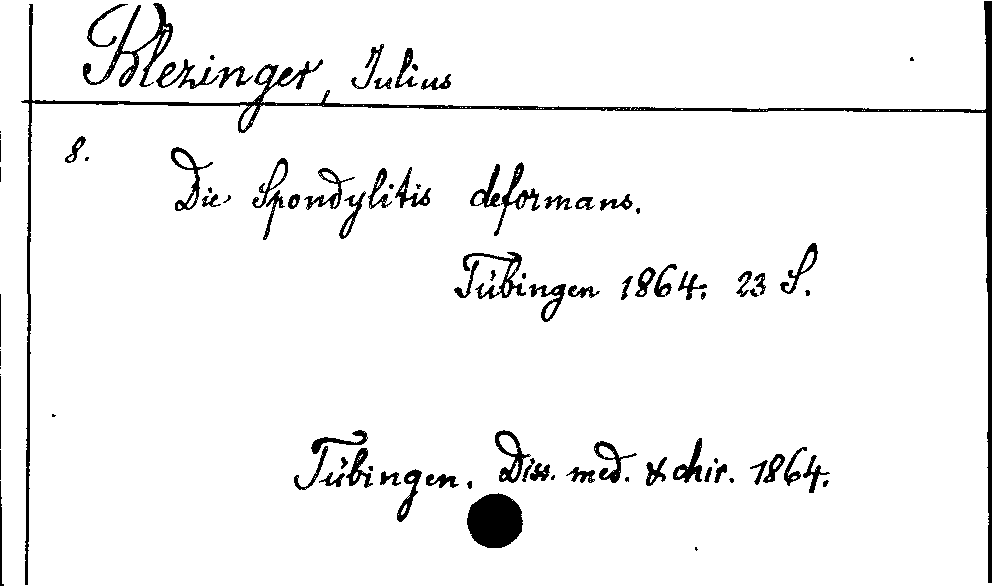 Blezinger, Julius
8.
Die Spondylitis deformans.
Tübingen 1864. 23 S.
Tübingen. Diss. med. & chir. 1864.